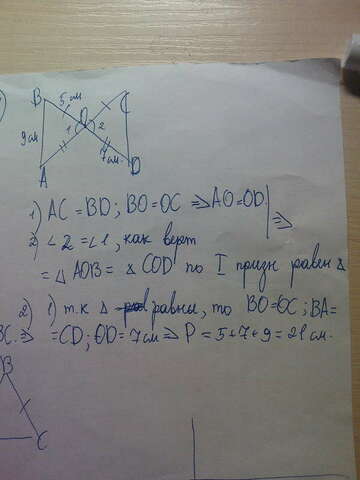 B 5 см C
O
1 2
9 см
7 см.
A D
1) AC = BD; BO = OC ⇒ AO = OD. ⇒
2) ∠2 = ∠1, как верт
= △ AOB = △ COD по I призн равен △
2) 1) т.к △ равны, то BO = OC; BA =
BC. ⇒ = CD; OD = 7 см ⇒ P = 5 + 7 + 9 = 21 см.
B
C